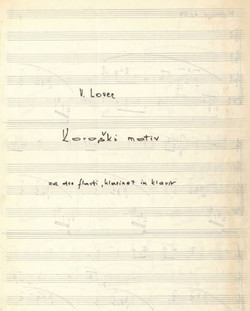 V. Lovec
Koroški motiv
za dve flavti, klarinet in klavir